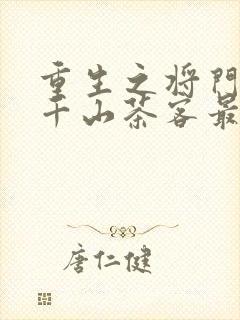 重生之将门
千山茶客最
唐仁健